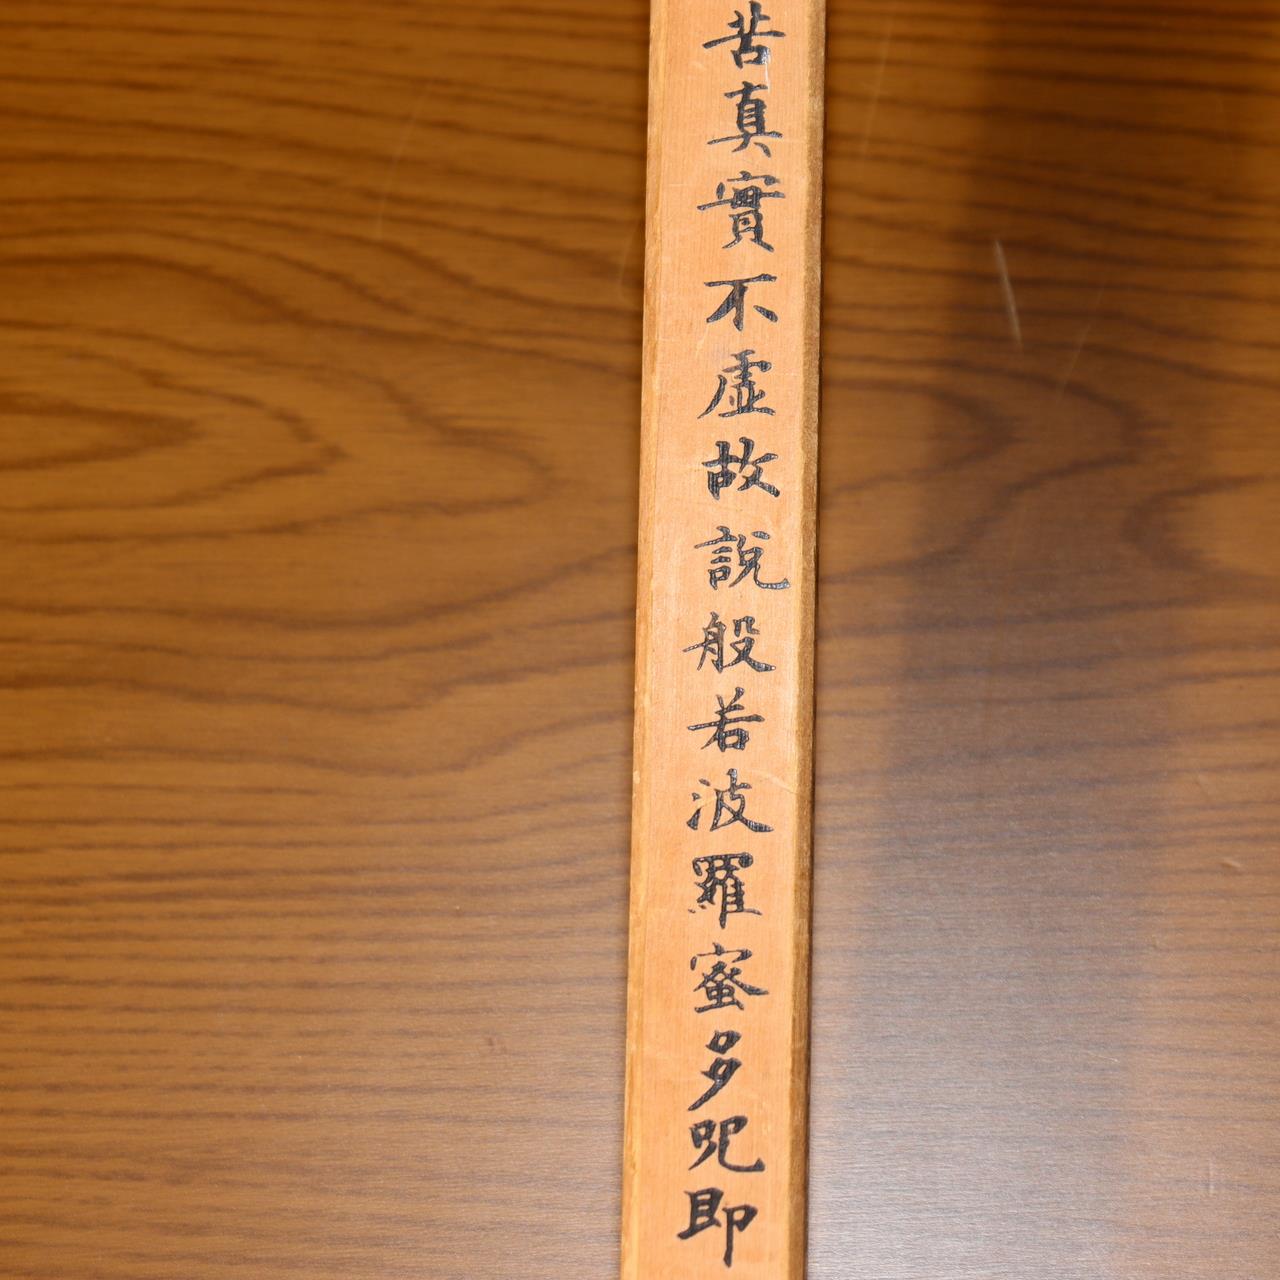 苦真實不虛故說般若波羅蜜多咒即